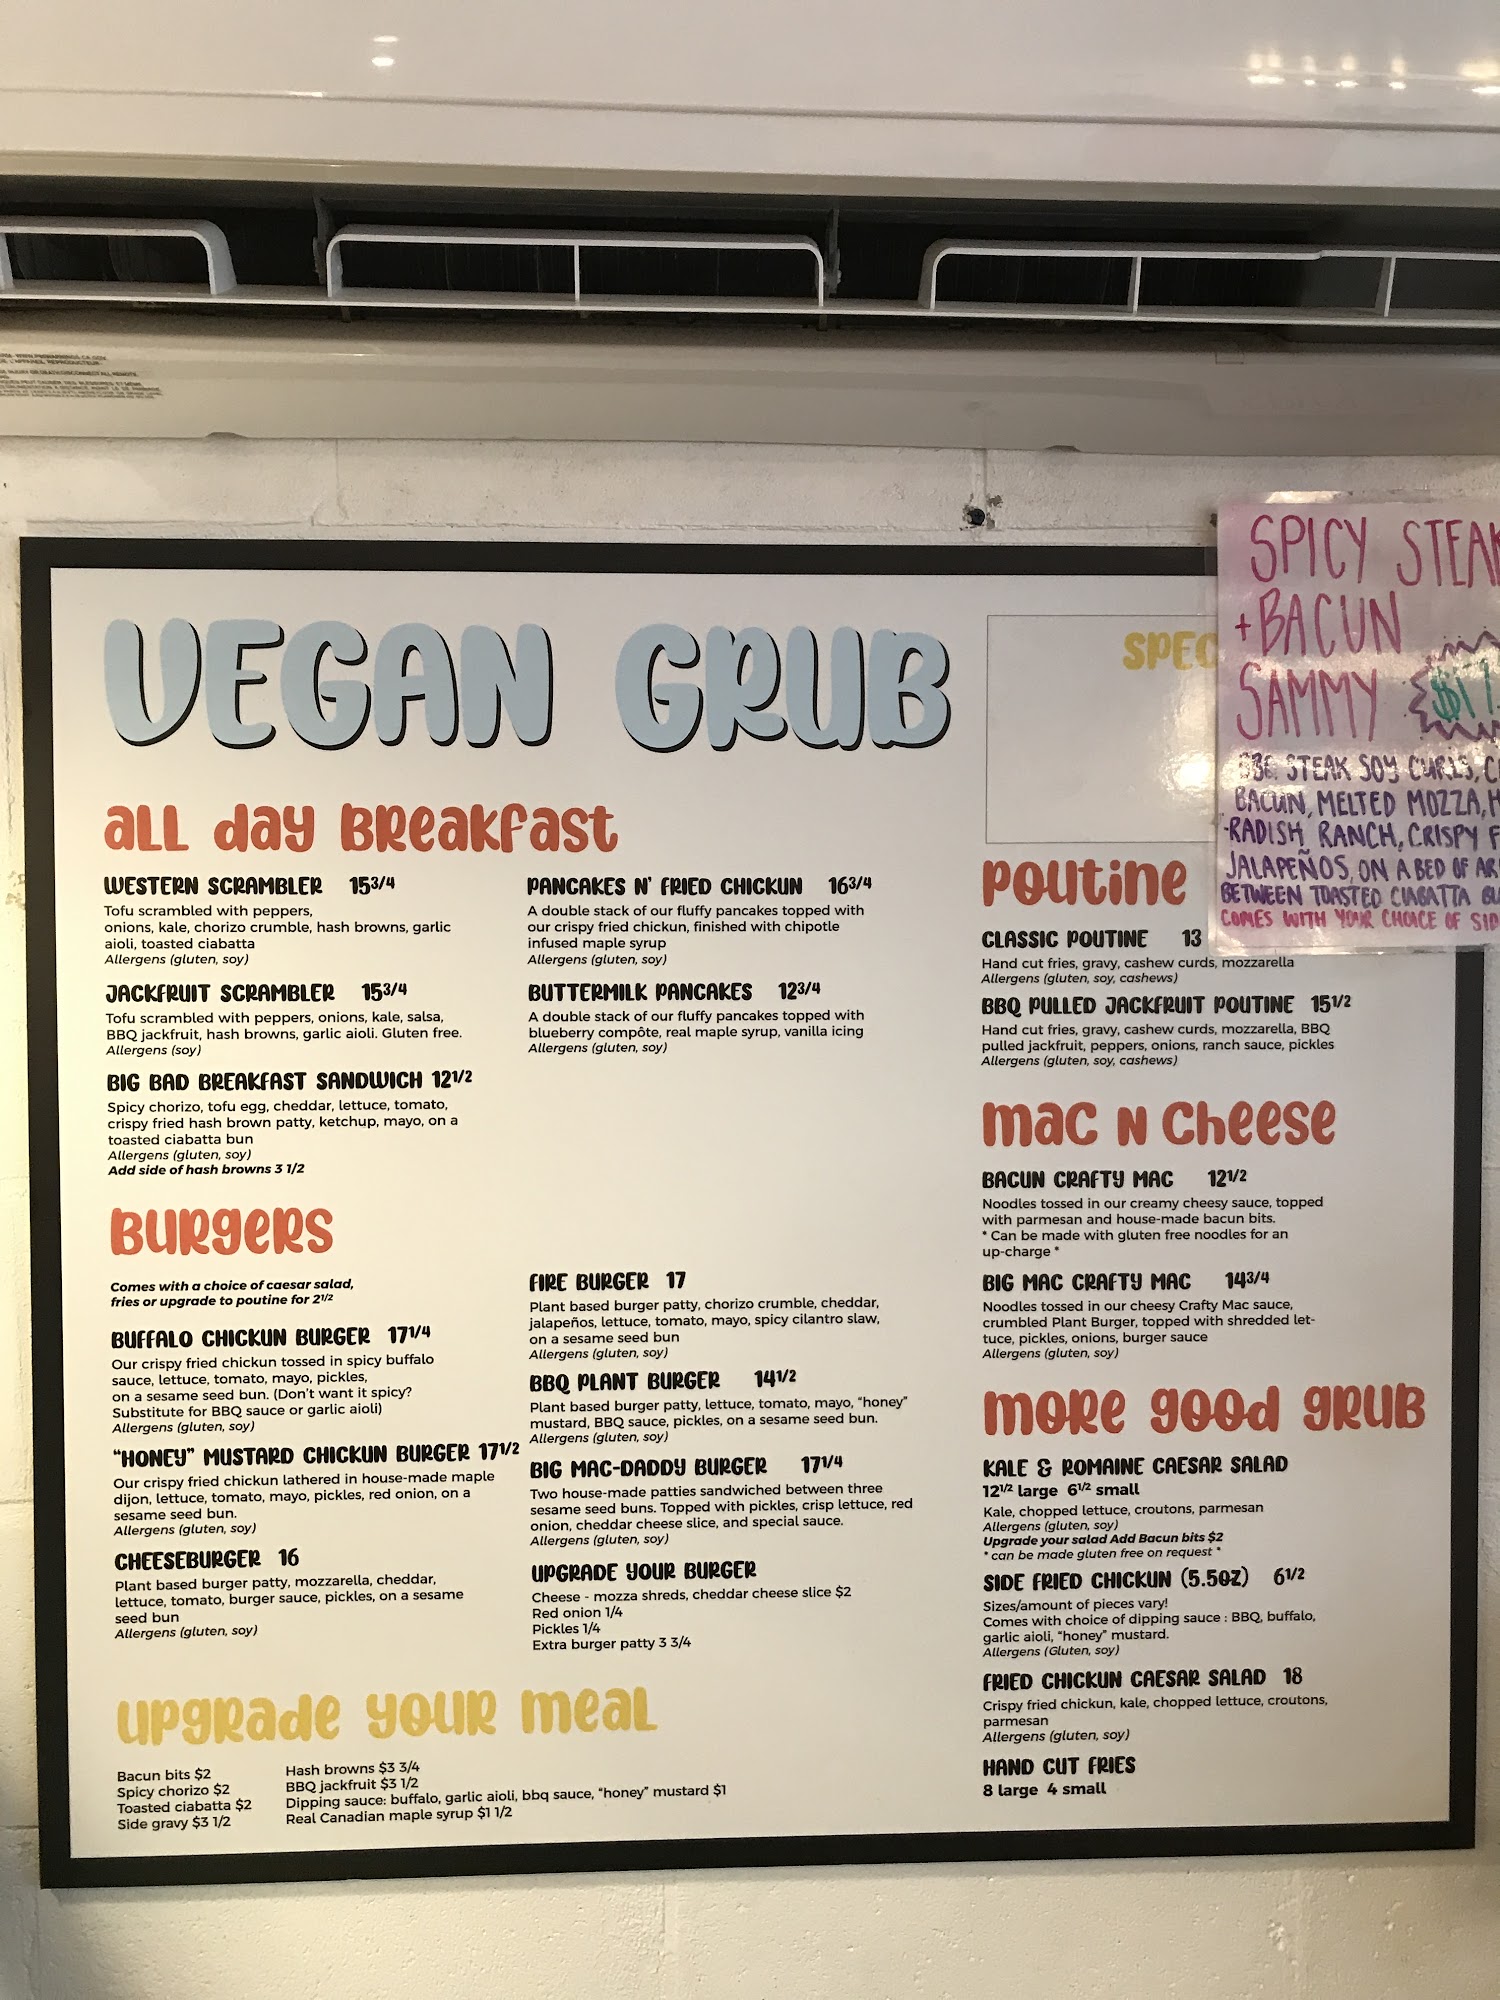 VEGAN GRUB
all day Breakfast
WESTERN SCRAMBLER 15 3/4
Tofu scrambled with peppers,
onions, kale, chorizo crumble, hash browns, garlic
aioli, toasted ciabatta
Allergens (gluten, soy)
JACKFRUIT SCRAMBLER 15 3/4
Tofu scrambled with peppers, onions, kale, salsa,
BBQ jackfruit, hash browns, garlic aioli. Gluten free.
Allergens (soy)
BIG BAD BREAKFAST SANDWICH 12 1/2
Spicy chorizo, tofu egg, cheddar, lettuce, tomato,
crispy fried hash brown patty, ketchup, mayo, on a
toasted ciabatta bun
Allergens (gluten, soy)
Add side of hash browns 3 1/2
PANCAKES N' FRIED CHICKUN 16 3/4
A double stack of our fluffy pancakes topped with
our crispy fried chickun, finished with chipotle
infused maple syrup
Allergens (gluten, soy)
BUTTERMILK PANCAKES 12 3/4
A double stack of our fluffy pancakes topped with
blueberry compôte, real maple syrup, vanilla icing
Allergens (gluten, soy)
Burgers
Comes with a choice of caesar salad,
fries or upgrade to poutine for 2 1/2
BUFFALO CHICKUN BURGER 17 1/4
Our crispy fried chickun tossed in spicy buffalo
sauce, lettuce, tomato, mayo, pickles,
on a sesame seed bun. (Don't want it spicy?
Substitute for BBQ sauce or garlic aioli)
Allergens (gluten, soy)
"HONEY" MUSTARD CHICKUN BURGER 17 1/2
Our crispy fried chickun lathered in house-made maple
dijon, lettuce, tomato, mayo, pickles, red onion, on a
sesame seed bun.
Allergens (gluten, soy)
CHEESEBURGER 16
Plant based burger patty, mozzarella, cheddar,
lettuce, tomato, burger sauce, pickles, on a sesame
seed bun
Allergens (gluten, soy)
FIRE BURGER 17
Plant based burger patty, chorizo crumble, cheddar,
jalapeños, lettuce, tomato, mayo, spicy cilantro slaw,
on a sesame seed bun
Allergens (gluten, soy)
BBQ PLANT BURGER 14 1/2
Plant based burger patty, lettuce, tomato, mayo, "honey"
mustard, BBQ sauce, pickles, on a sesame seed bun.
Allergens (gluten, soy)
BIG MAC-DADDY BURGER 17 1/4
Two house-made patties sandwiched between three
sesame seed buns. Topped with pickles, crisp lettuce, red
onion, cheddar cheese slice, and special sauce.
Allergens (gluten, soy)
UPGRADE YOUR BURGER
Cheese - mozza shreds, cheddar cheese slice $2
Red onion 1/4
Pickles 1/4
Extra burger patty 3 3/4
upgrade your meal
Bacun bits $2
Spicy chorizo $2
Toasted ciabatta $2
Side gravy $3 1/2
Hash browns $3 3/4
BBQ jackfruit $3 1/2
Dipping sauce: buffalo, garlic aioli, bbq sauce, "honey" mustard $1
Real Canadian maple syrup $1 1/2
SPEC
Poutine
CLASSIC POUTINE 13
Hand cut fries, gravy, cashew curds, mozzarella
Allergens (gluten, soy, cashews)
BBQ PULLED JACKFRUIT POUTINE 15 1/2
Hand cut fries, gravy, cashew curds, mozzarella, BBQ
pulled jackfruit, peppers, onions, ranch sauce, pickles
Allergens (gluten, soy, cashews)
mac n cheese
BACUN CRAFTY MAC 12 1/2
Noodles tossed in our creamy cheesy sauce, topped
with parmesan and house-made bacun bits.
* Can be made with gluten free noodles for an
up-charge *
BIG MAC CRAFTY MAC 14 3/4
Noodles tossed in our cheesy Crafty Mac sauce,
crumbled Plant Burger, topped with shredded let-
tuce, pickles, onions, burger sauce
Allergens (gluten, soy)
more good grub
KALE & ROMAINE CAESAR SALAD
12 1/2 large 6 1/2 small
Kale, chopped lettuce, croutons, parmesan
Allergens (gluten, soy)
Upgrade your salad Add Bacun bits $2
* can be made gluten free on request *
SIDE FRIED CHICKUN (5.5OZ) 6 1/2
Sizes/amount of pieces vary!
Comes with choice of dipping sauce : BBQ, buffalo,
garlic aioli, "honey" mustard.
Allergens (Gluten, soy)
FRIED CHICKUN CAESAR SALAD 18
Crispy fried chickun, kale, chopped lettuce, croutons,
parmesan
Allergens (gluten, soy)
HAND CUT FRIES
8 large 4 small
SPICY STEAK
+BACUN
SAMMY $17
STEAK SOY CURLS, C
BACUN, MELTED MOZZA, H
-RADISH RANCH, CRISPY F
JALAPEÑOS, ON A BED OF AR
BETWEEN TOASTED CIABATTA BU
COMES WITH YOUR CHOICE OF SID